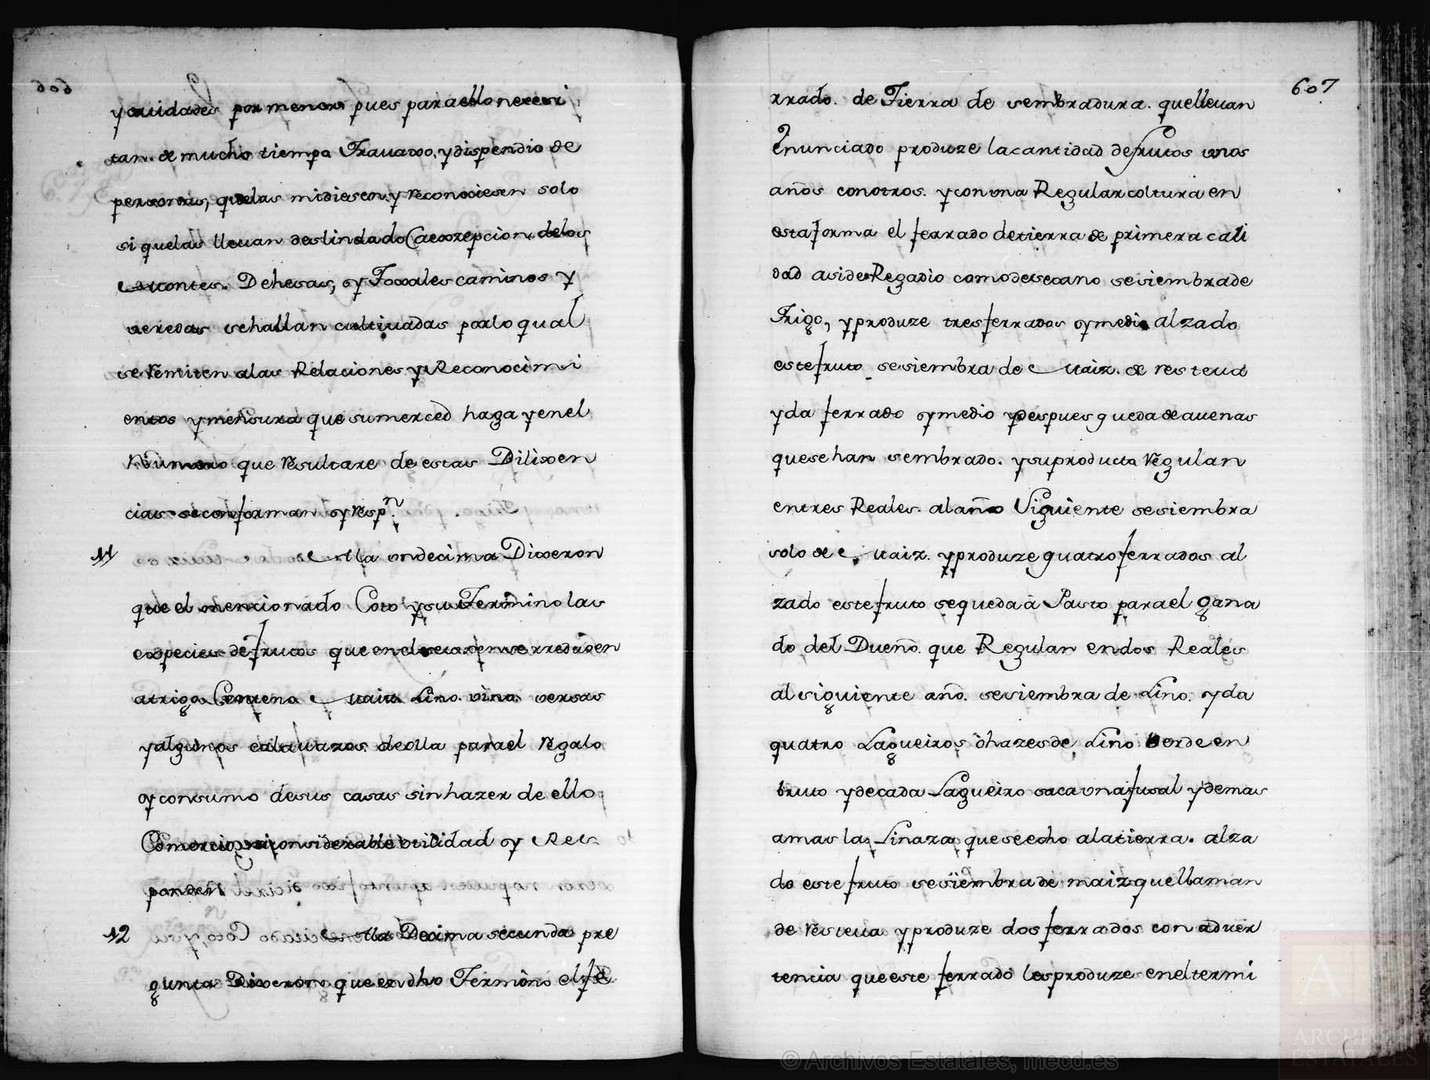 y cavidades por menor pues para ello necesi
tan. de mucho tiempo Travaxo, y dispendio de
personas, que las midiesen, y reconociesen solo
si que las llevan deslindado Caexzepcion de los
montes. Dehesas, y Toxales caminos y
veredas se hallan cultivadas por lo qual
se remiten a las Relaciones y Reconocimi
entos y mensura que sumerced haga y en el
Número que resultare de estas Dilixen
cias se conforman y resp.n
11 A la ondecima Dixeron
que el mencionado Coto y su Termino las
especies de frutos que en el se coxen se rreduzen
a trigo Centeno Maiz Lino. vino. versas
y algunos calavazos de olla para el regalo
y consumo de sus casas sin hazer de ello
Comercio ni considerable utilidad y Res
ponden
12 A la Dezima segunda pre
gunta Dixeron que en dho Termino el fe
607
rrado. de Tierra de sembradura. que llevan
Enunciado produze la cantidad de frutos unos
años con otros. y con una Regular coltura en
esta forma el ferrado de tierra de primera cali
dad asi de Regadio como de secano se siembra de
Trigo, y produze tres ferrados y medio alzado
este fruto se siembra de Maiz. de resteva
y da ferrado y medio y despues queda de avenas
que se han sembrado. y su producto regulan
en tres Reales. al año Siguiente se siembra
solo de Maiz. y produze quatro ferrados al
zado este fruto se queda à Pasto para el gana
do del Dueño. que Regulan en dos Reales
al siguiente año. se siembra de Lino. y da
quatro Lagueiros ò hazes de Lino verde en
bruto y de cada Lagueiro saca una fusal y demas
a mas la Linaza que se echo a la tierra. alza
do este fruto se siembra de maiz que llaman
de resteva y produze dos ferrados con adver
tencia que este ferrado les produze en el termi
© Archivos Estatales, mecd.es
ARCHIVOS
ESTATALES